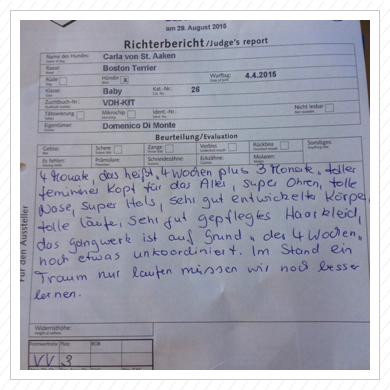 am 29. August 2015
Richterbericht/Judge's report
Name des Hundes: Carla von St. Aaken
Rasse: Boston Terrier
Rüde Hündin x Wurftag: 4.4.2015
Klasse: Baby Kat.-Nr.: 26
Zuchtbuch-Nr.: VDH-KfT
Tätowierung Mikrochip Ident.-Nr.: Nicht lesbar
Eigentümer: Domenico Di Monte
Beurteilung/Evaluation
Gebiss: Schere Zange Vorbiss Rückbiss Sonstiges:
Es fehlen: Prämolare: Schneidezähne: Eckzähne: Molaren:
4 Monate, das heißt, 4 Wochen plus 3 Monate, toller
femininer Kopf für das Alter, super Ohren, tolle
Nase, super Hals, sehr gut entwickelter Körper,
tolle Läufe, sehr gut gepflegtes Haarkleid,
das Gangwerk ist auf Grund, der 4 Wochen,
noch etwas unkoordiniert. Im Stand ein
Traum nur laufen müssen wir noch besser
lernen.
Für den Aussteller
Widerristhöhe:
Formwertnote Platz: BOB
VV 3